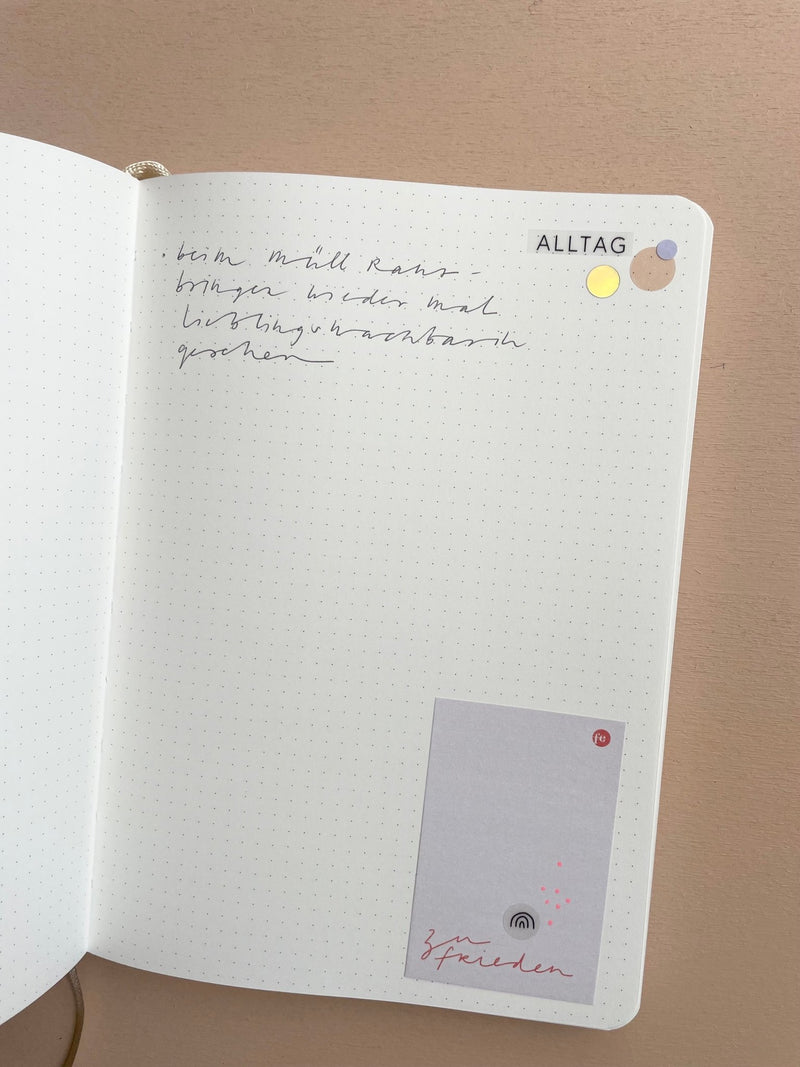 ALLTAG
· beim Müll Raus-
bringen wieder mal
Lieblingsnachbarin
gesehen
fe
zu
frieden